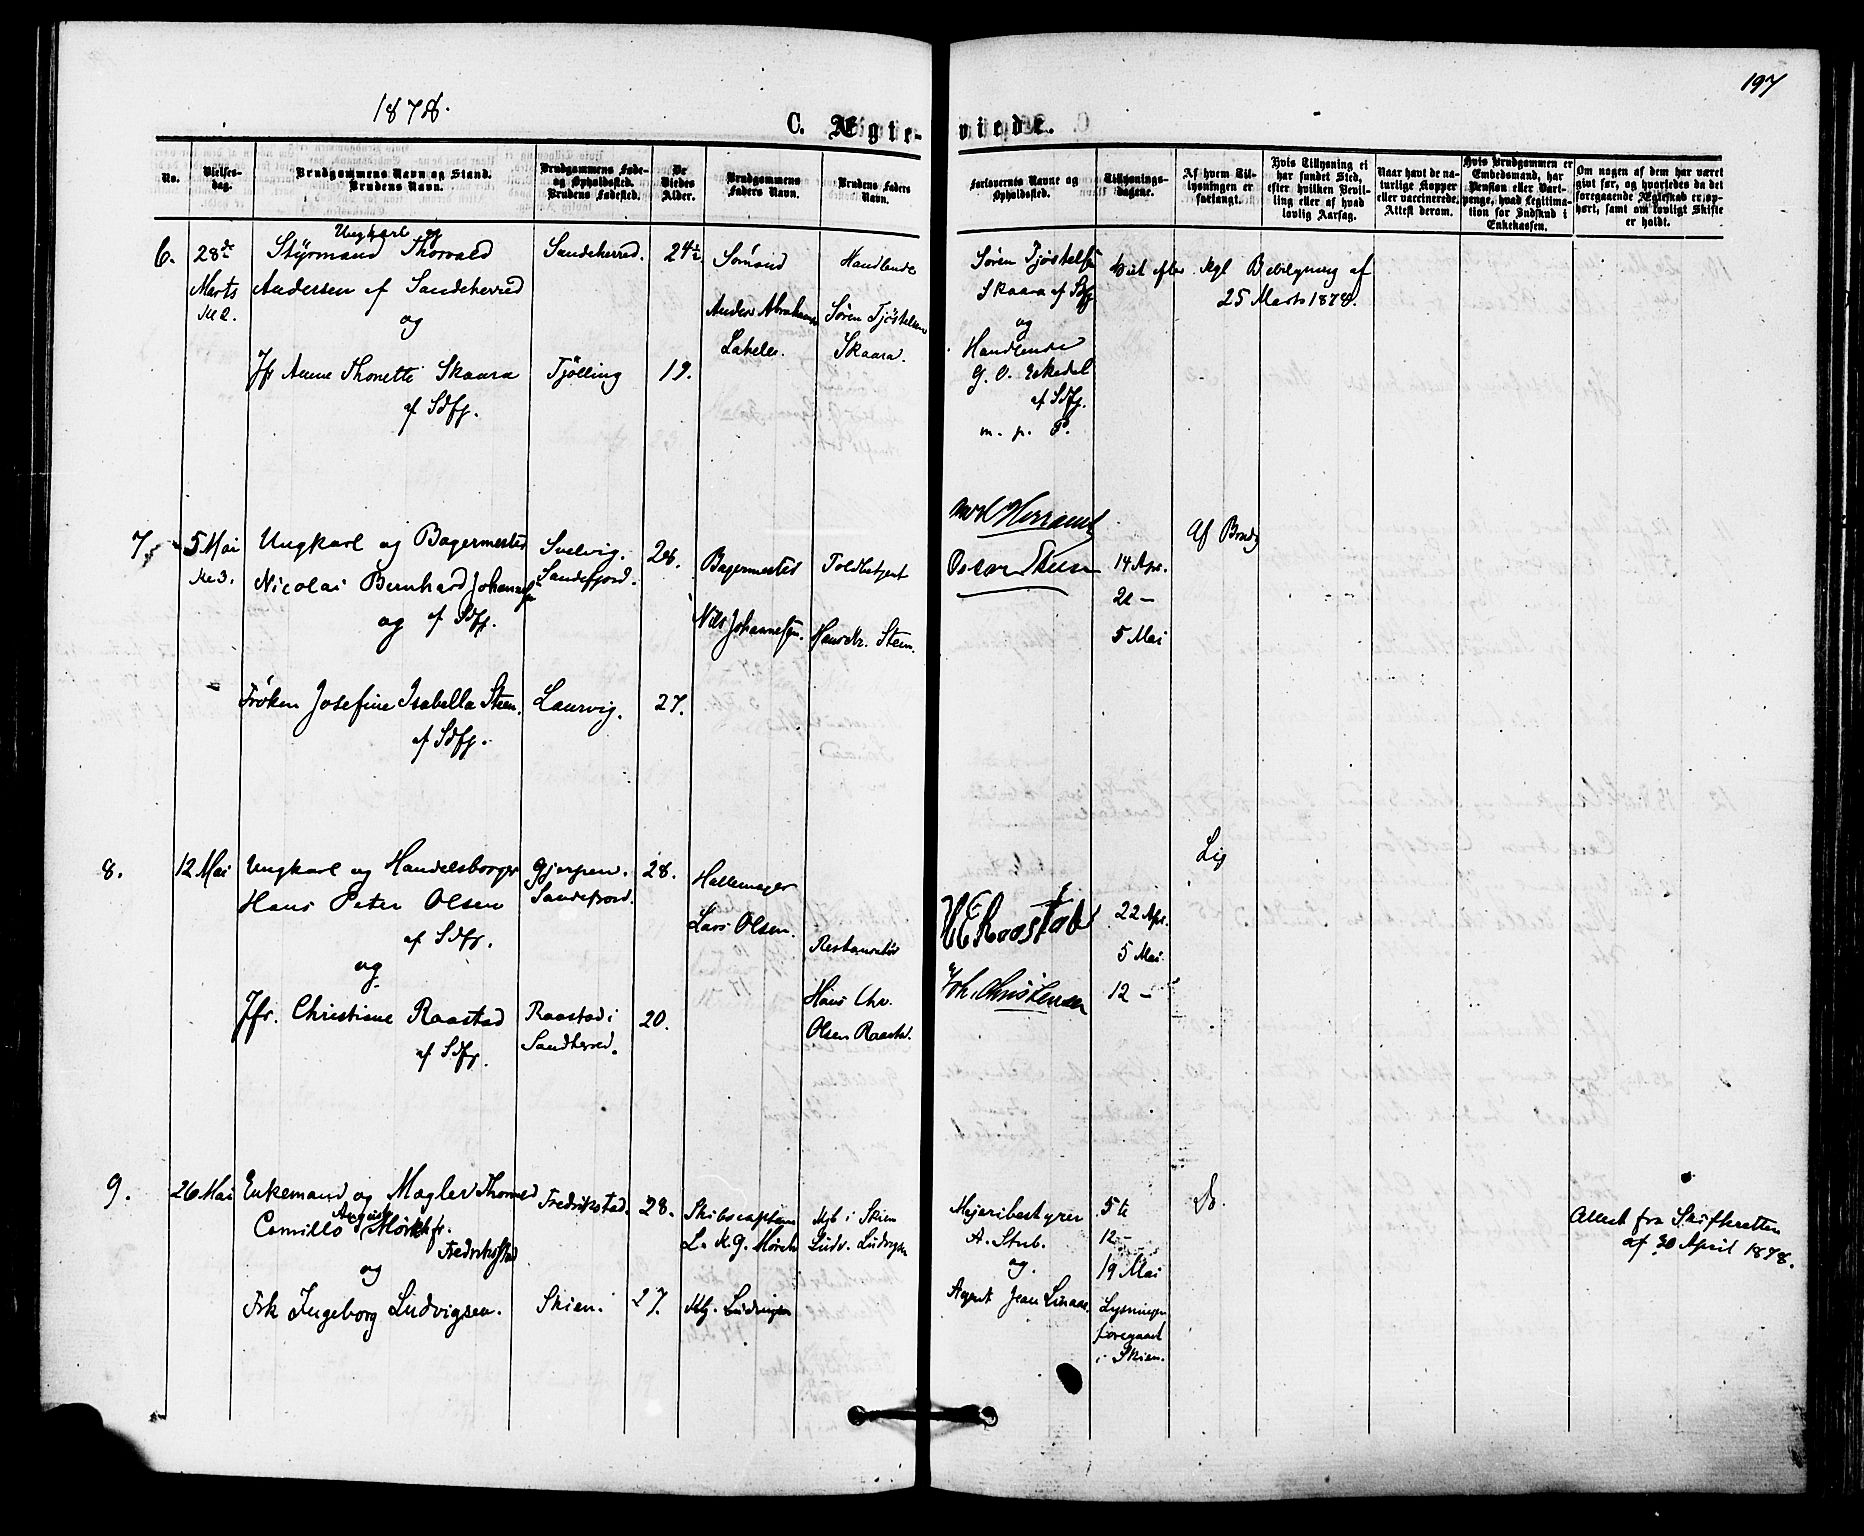 197
1878.
C. Ægte-viede.
No.
Vielses-dag.
Brudgommens Navn og Stand.
Brudens Navn.
Brudgommens Føde- og Opholdssted.
Brudens Fødested.
De Viedes Alder.
Brudgommens Faders Navn.
Brudens Faders Navn.
Forlovernes Navne og Opholdssted.
Tillysnings-dagene.
Af hvem Tillysningen er forlangt.
Hvis Tillysning ei har fundet Sted, efter hvilken Bevilling eller af hvad lovlig Aarsag.
Naar havt de naturlige Kopper eller vaccinerede, Attest derom.
Hvis Brudgommen er Embedsmand, har Pension eller Vartpenge, hvad Legitimation for Indskud i Enkekassen.
Om nogen af dem har været givt før, og hvorledes da det foregaaende Ægteskab er ophørt, samt om lovligt Skifte er holdt.
6.
28de Marts
Kl 2.
Ungkarl og
Styrmand Thorvald
Andersen af Sandeherred
og
Jfr Anne Thonette Skaara
af Sdfj.
Sandeherred.
Tjølling
24½
19.
Sømand
Anders Abrahams
Handlende
Søren Tjøstelsen
Skaara.
Søren Tjøstelsen
Skaara af Sdfj
og
Handlende
G. O. Ekedal
af Sdfj.
m. p. P.
Viet efter Kgl Bevilgning af
25 Marts 1878.
7
5 Mai
Kl 3.
Ungkarl og Bagermester
Nicolai Bernhard Johannesen
og af Sdfj.
Frøken Josefine Isabella Steen.
af Sdfj.
Svelvig.
Sandefjord.
Laurvig.
28.
27.
Bagermester
Nils Johannesen.
Toldbetjent
Hans Kr. Steen.
Oscar Steen
14 Apr.
21 —
5 Mai
Af Brudg
8.
12 Mai
Ungkarl og Handelsborger
Hans Peter Olsen
af Sdfj.
og
Jfr. Christiane Raastad
af Sdfj.
Gjerpen.
Sandefjord.
Raastad i
Sandherred.
28.
20.
Hattemager
Lars Olsen.
Restauratør
Hans Chr.
Olsen Raastad.
H C Raastad
Joh. Christensen
22 Apr.
5 Mai.
12 —
Lig
9.
26 Mai
Enkemand og Mægler Thorvald
Camillo August Mørch fr.
Fredriksstad
og
Frk Ingeborg Ludvigsen.
Fredrikstad.
Skien.
28.
27.
Skibscaptain
L. K. G. Mørch
Kjb. Ludvigsen
Kjb i Skien
Ludv. Ludvigsen
Mejeribestyrer
A. Stub.
og.
Agent Jean Linaae.
5te
12 —
19 Mai
Lysningen
foregaaet
i Skien.
Do.
Attest fra Skifteretten
af 30 April 1878.